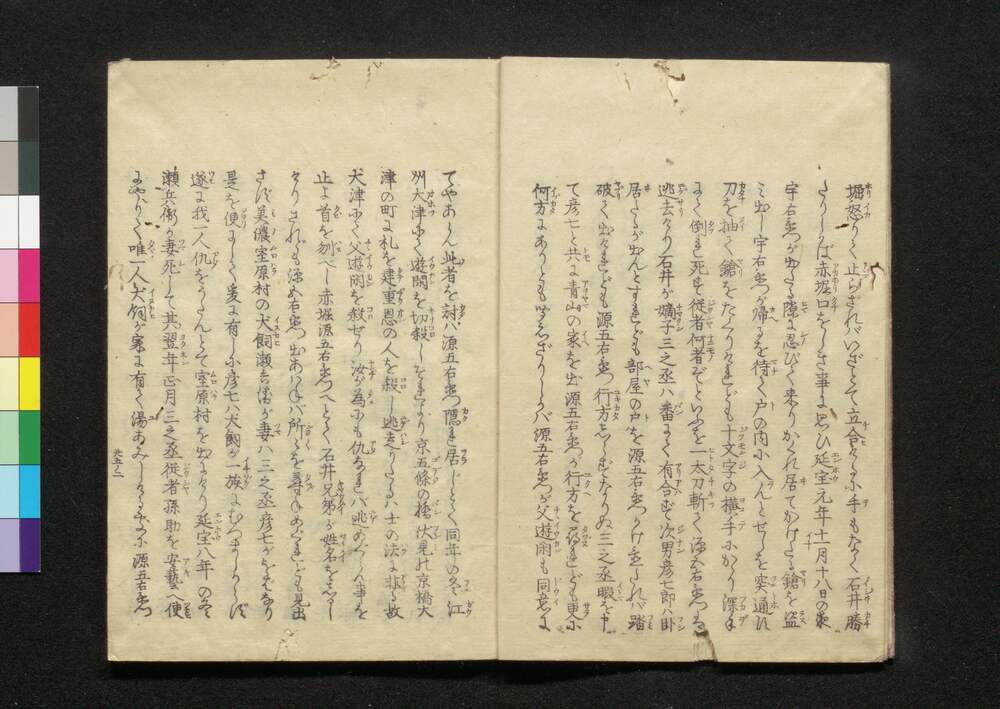 堀怒りて止らざれバいざとて立合けるに手もなく石井勝
たりしかば赤堀口をしき事に思ひ延宝元年十一月十八日の夜
宇右衛門が出たる隙に忍びて来りかくれ居てかけたる鎗を盗
ミ出し宇右衛門が帰るを待て戸の内に入んとせしを突通す
刀を抽て鎗をたぐりけれども十文字の横手にかゝり深手
にて倒れ死す従者何者ぞといふを一太刀斬て源五右衛門ハ
逃去けり石井が嫡子三之丞ハ番にて有合せず次男彦七郎ハ臥
居たるが出んとすれども部屋の戸を源五右衛門かけ置たれバ踏
破て出けれども源五右衛門行方しれずなりぬ三之丞暇を申
て彦七と共に青山の家を出源五右衛門が行方を尋れども更に
何方にありとも知れざりしかバ源五右衛門が父遊閑も同意に
てやあらん此者を討バ源五右衛門隠れ居じとて同年の冬江
州大津にて遊閑を切殺しそれより京五條の橋伏見の京橋大
津の町に札を建重恩の人を殺し逃走りたるハ士の法に非ず故
大津にて父遊閑を殺せり汝が為にも仇なれバ逃かくるゝ事を
止よ首を刎べし赤堀源五右衛門へとて石井兄弟が姓名をしるし
けりされども源五右衛門出あハねバ所々を尋ねあくれども見出
さず美濃室原村の犬飼瀬兵衛が妻ハ三之丞彦七が
是を便りにして爰に有しに彦七ハ犬飼が一族にむつましからず
遂に我一人仇をうたんとて室原村を出にけり延宝八年の冬
瀬兵衛が妻死して其翌年正月三之丞従者孫助を安藝へ便
にやりて唯一人犬飼が家に有て湯あみしける所に源五右衛門
九五ノ二